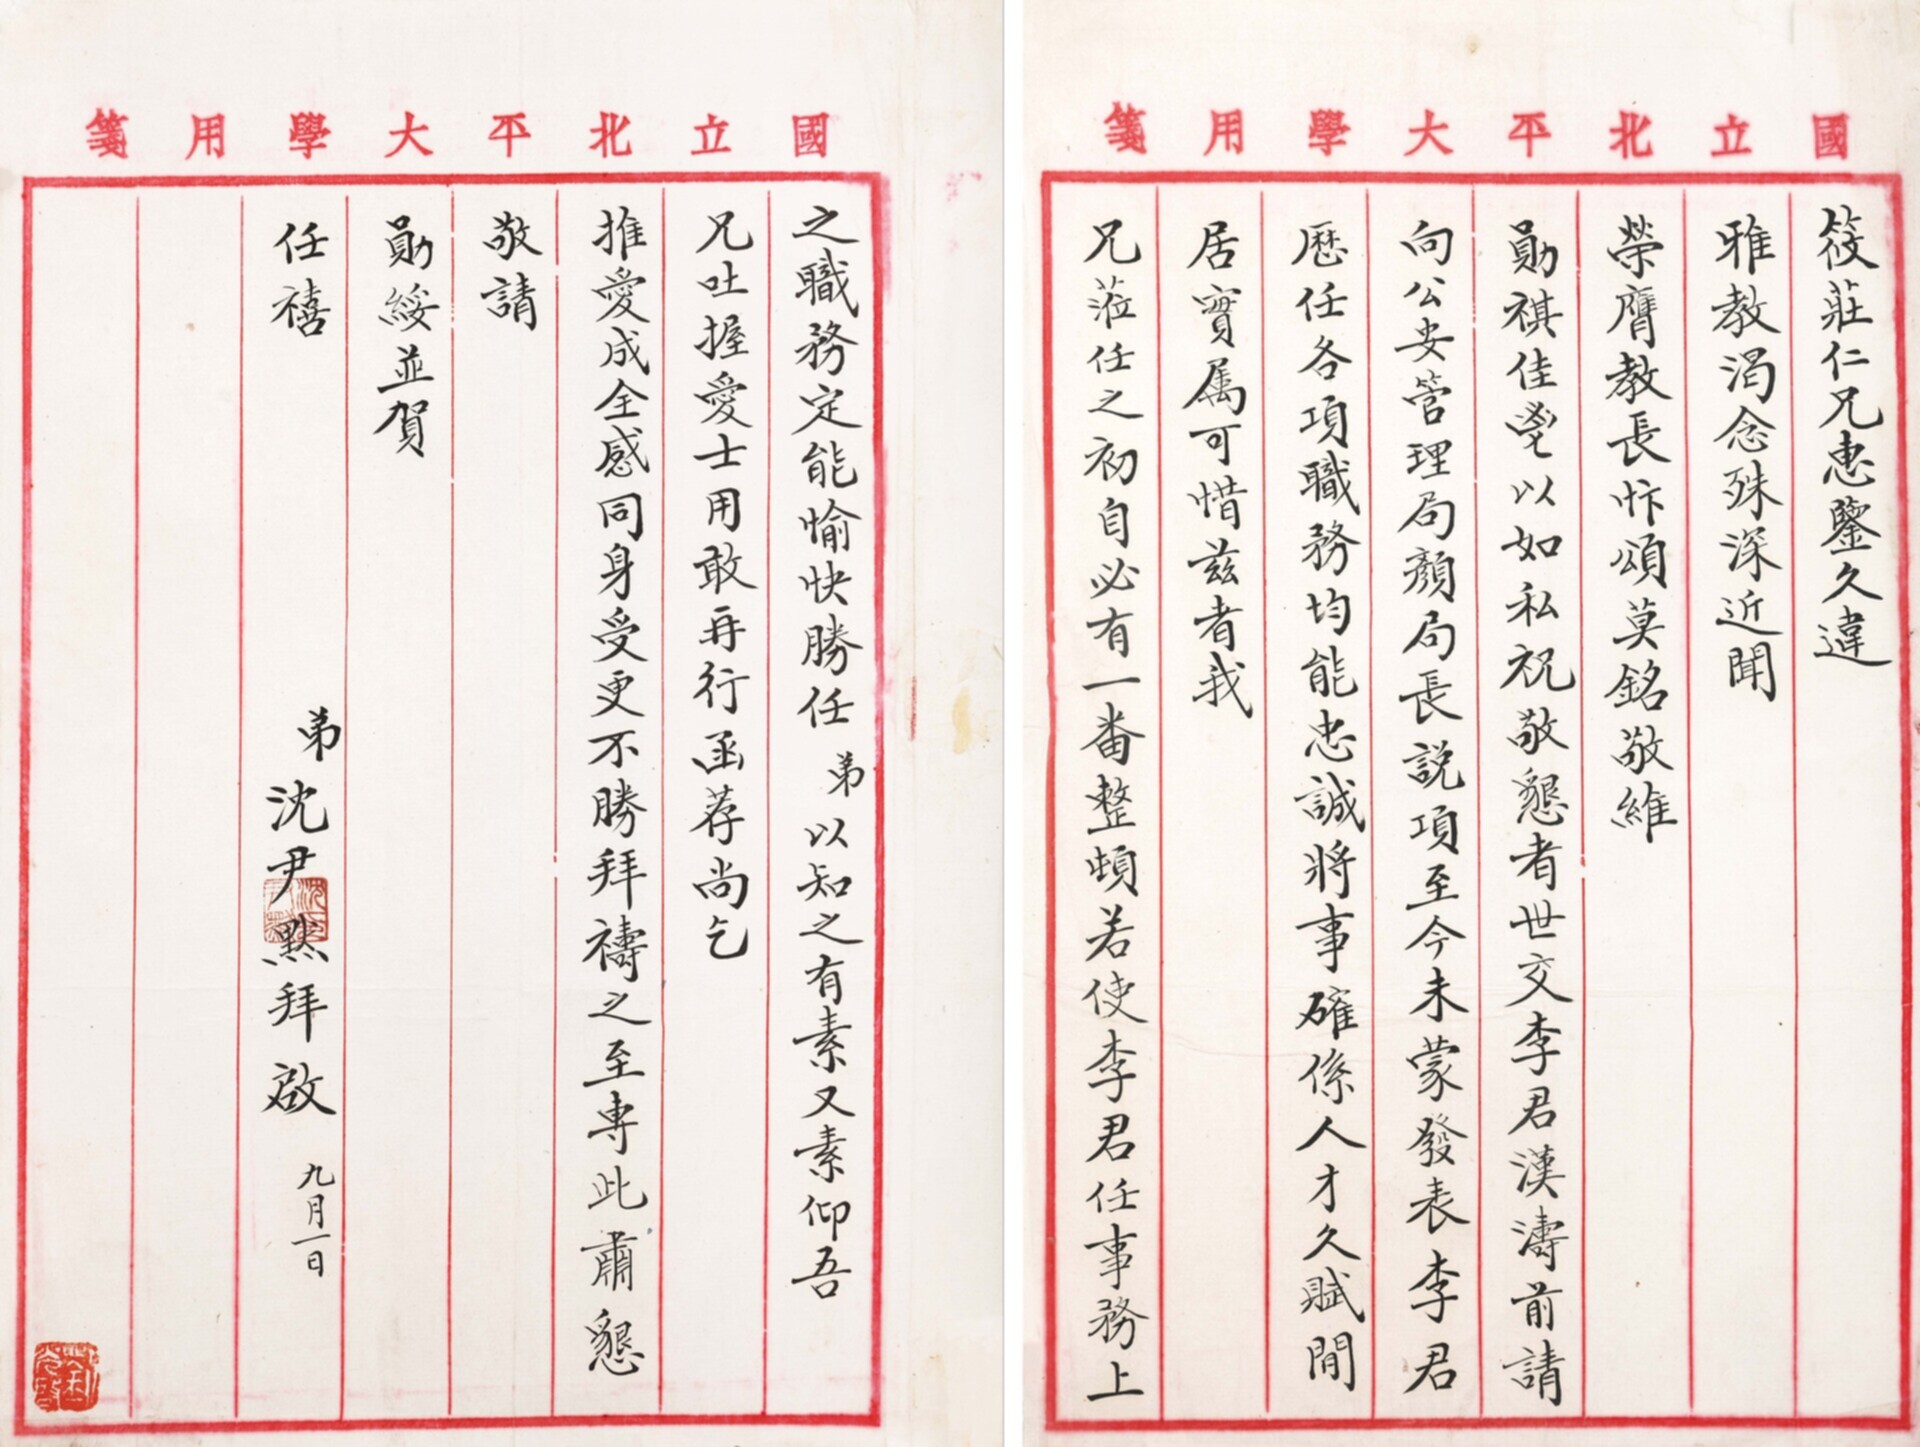 國立北平大學用箋
筱莊仁兄惠鑒久違
雅教渴念殊深近聞
榮膺教長忭頌莫銘敬維
勛祺佳鬯以如私祝敬懇者世交李君漢濤前請
向公安管理局顏局長説項至今未蒙發表李君
歷任各項職務均能忠誠將事確係人才久賦閒
居實属可惜兹者我
兄蒞任之初自必有一番整頓若使李君任事務上
國立北平大學用箋
之職務定能愉快勝任弟以知之有素又素仰吾
兄吐握愛士用敢再行函荐尚乞
推愛成全感同身受更不勝拜禱之至専此肅懇
敬請
勛綏並賀
任禧
弟沈尹默拜啟 九月一日